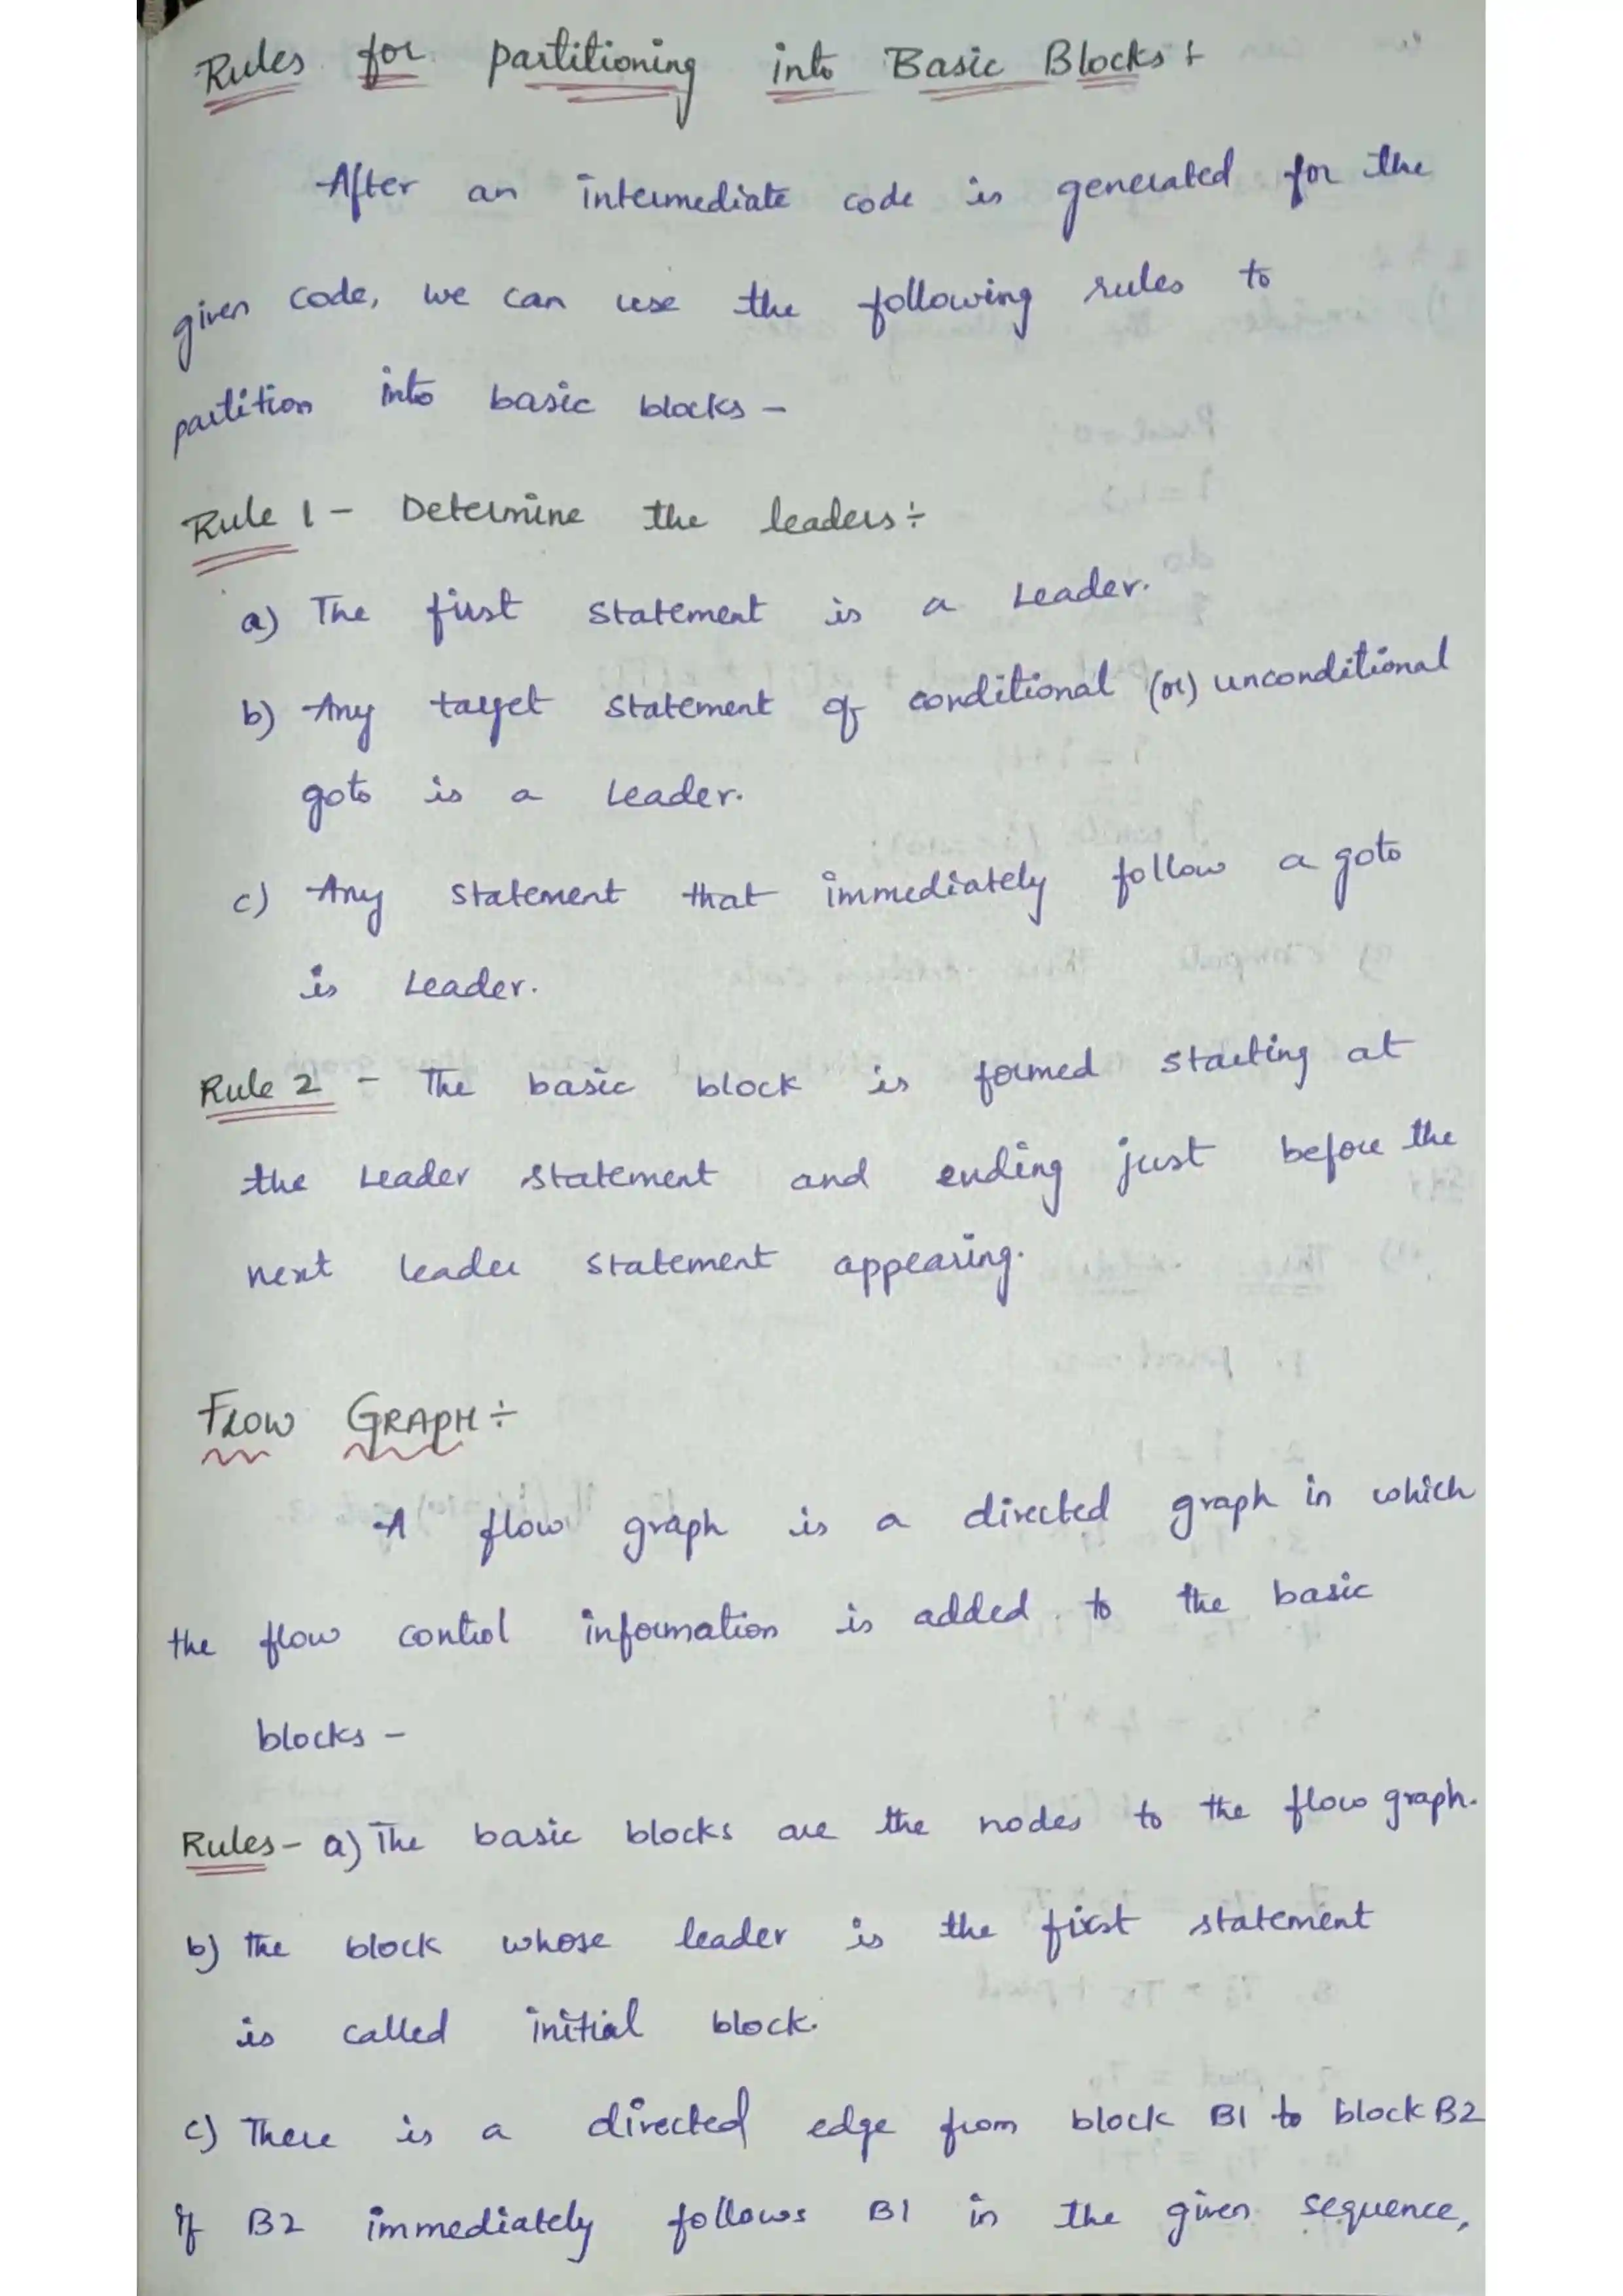 Rules for partitioning into Basic Blocks ÷
After an intermediate code is generated for the
given code, we can use the following rules to
partition into basic blocks -
Rule 1 - Determine the leaders ÷
a) The first statement is a Leader.
b) Any target statement of conditional (or) unconditional
goto is a Leader.
c) Any statement that immediately follow a goto
is Leader.
Rule 2 - The basic block is formed starting at
the Leader statement and ending just before the
next leader statement appearing.
FLOW GRAPH ÷
A flow graph is a directed graph in which
the flow control information is added to the basic
blocks -
Rules - a) The basic blocks are the nodes to the flow graph.
b) The block whose leader is the first statement
is called initial block.
c) There is a directed edge from block B1 to block B2
if B2 immediately follows B1 in the given sequence,